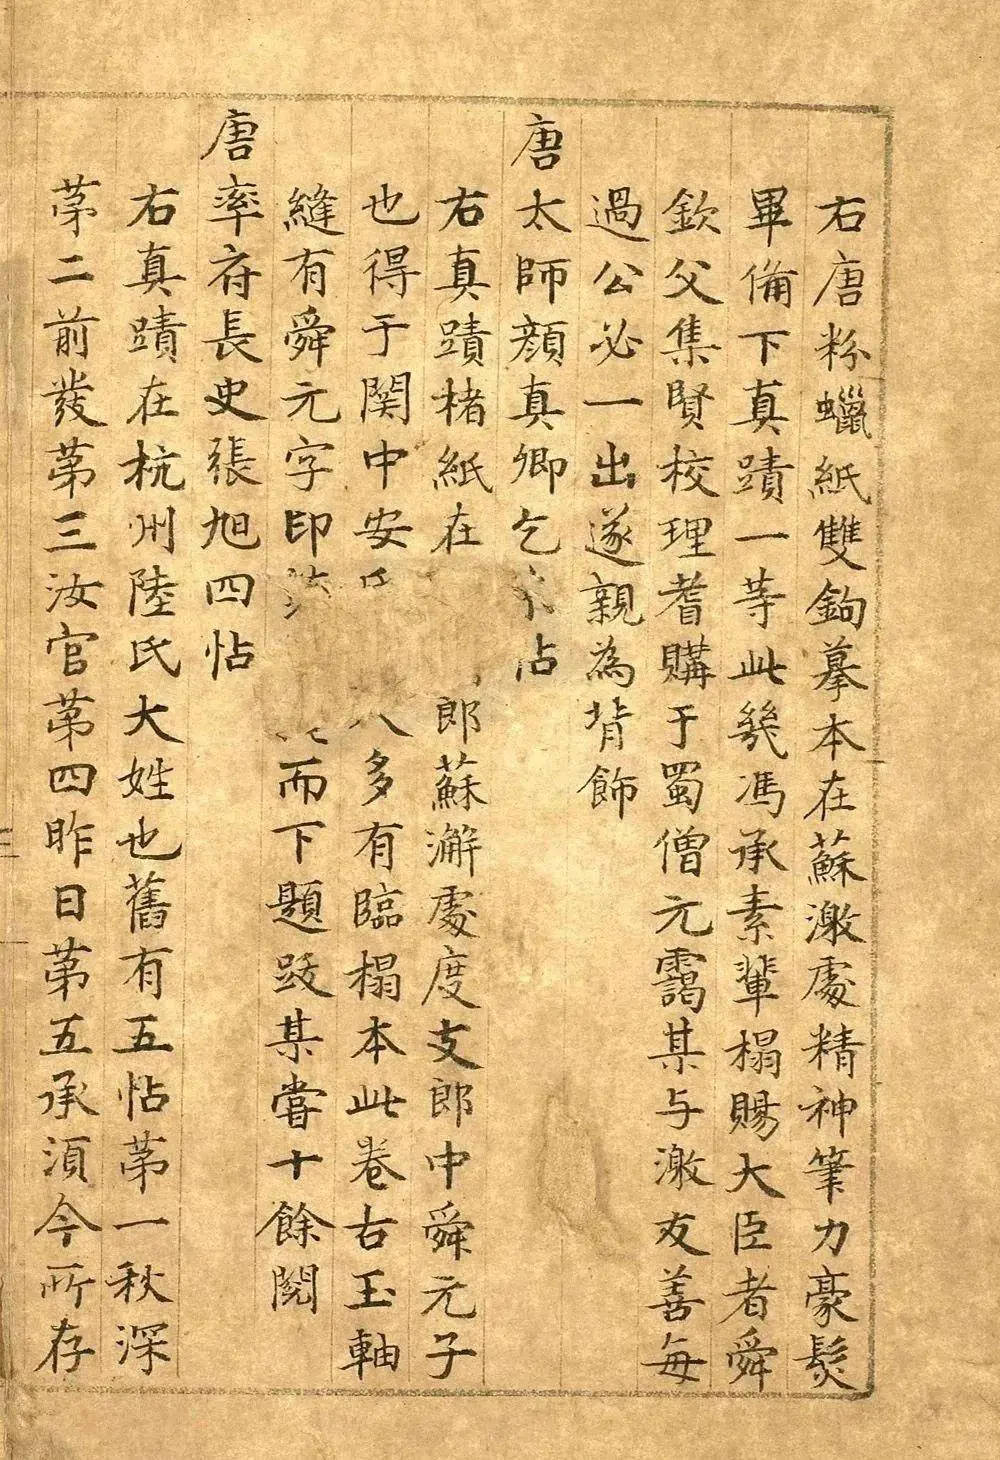 右唐粉蠟紙雙鉤摹本在蘇激處精神筆力豪髮
畢備下真蹟一等此幾馮承素輩榻賜大臣者舜
欽父集賢校理耆購于蜀僧元靄某与激友善每
過公必一出遂親為背飾
唐太師顏真卿乞
右真蹟楮紙在郎蘇澥處度支郎中舜元子
也得于関中安氏多有臨榻本此卷古玉軸
縫有舜元字印而下題跋某嘗十餘閱
唐率府長史張旭四帖
右真蹟在杭州陸氏大姓也舊有五帖苐一秋深
苐二前發苐三汝官苐四昨日第五承須今所存